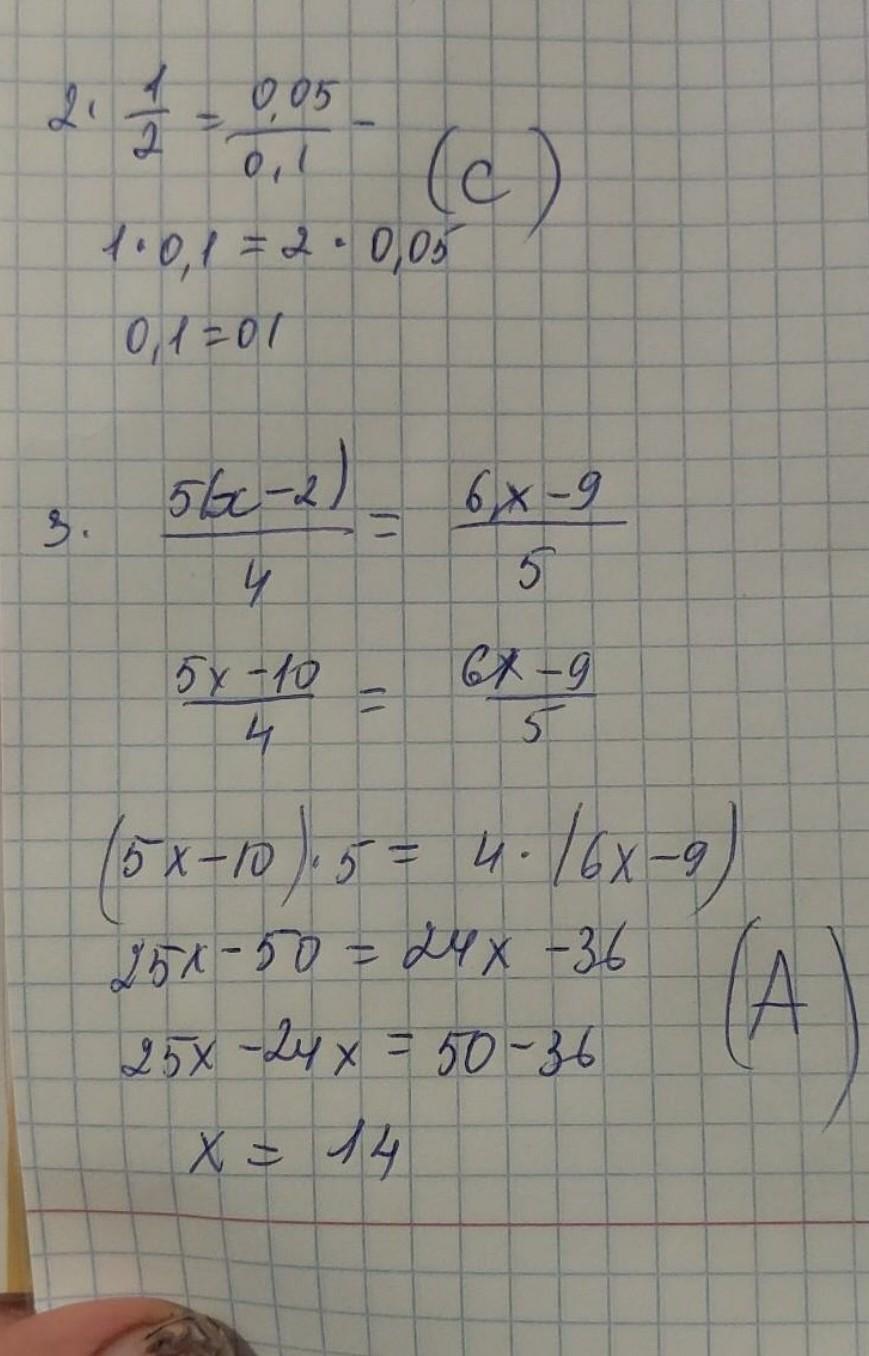 2. 1/2 = 0,05/0,1 -
(C)
1·0,1 = 2·0,05
0,1=01
3. 5(x-2)/4 = 6x-9/5
5x-10/4 = 6x-9/5
(5x-10)·5 = 4·(6x-9)
25x-50 = 24x-36
(A)
25x-24x = 50-36
x = 14